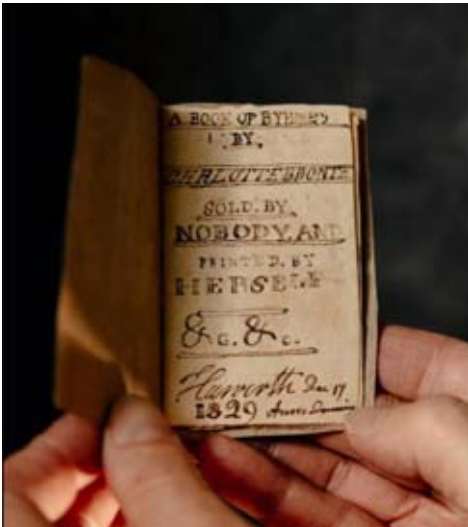 A BOOK OF RYHMES
BY.
CHARLOTTE BRONTE
SOLD. BY.
NOBODY. AND
PRINTED. BY
HERSELF
&. G. &. c.
Haworth Dec 17
1829 Anno Domini